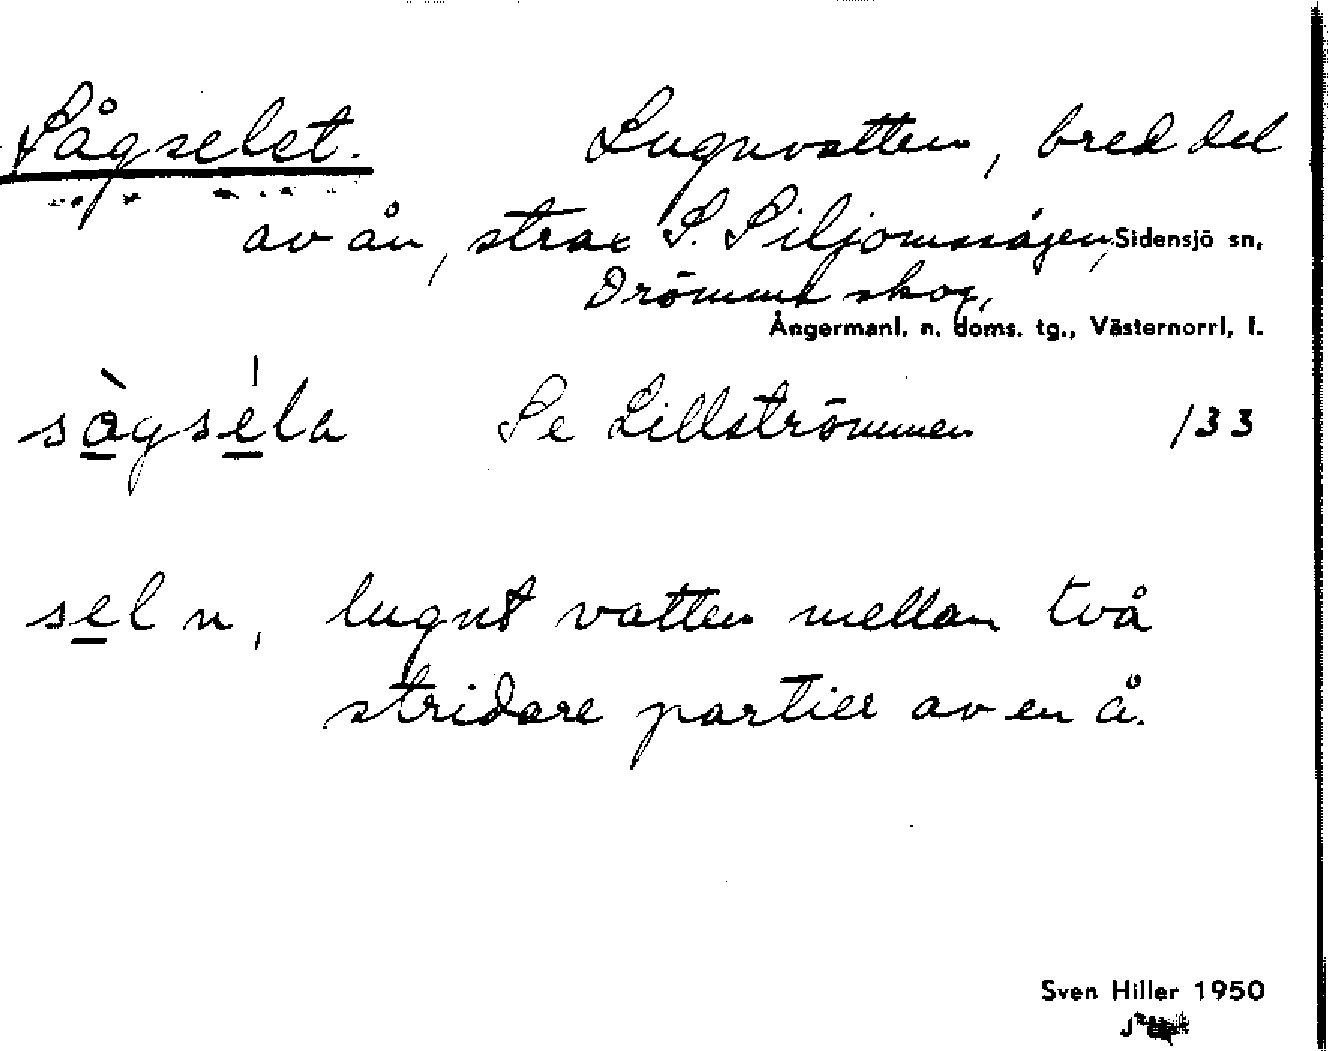 Sågselet. Lugnvatten, bred del
av ån, strax S. Siljomssågen, Sidensjö sn,
Drömme skog,
Ångermanl. n. doms. tg., Västernorrl, l.
sògséla Se Lillströmmen /33
sel n, lugnt vatten mellan två
stridare partier av en å.
Sven Hiller 1950